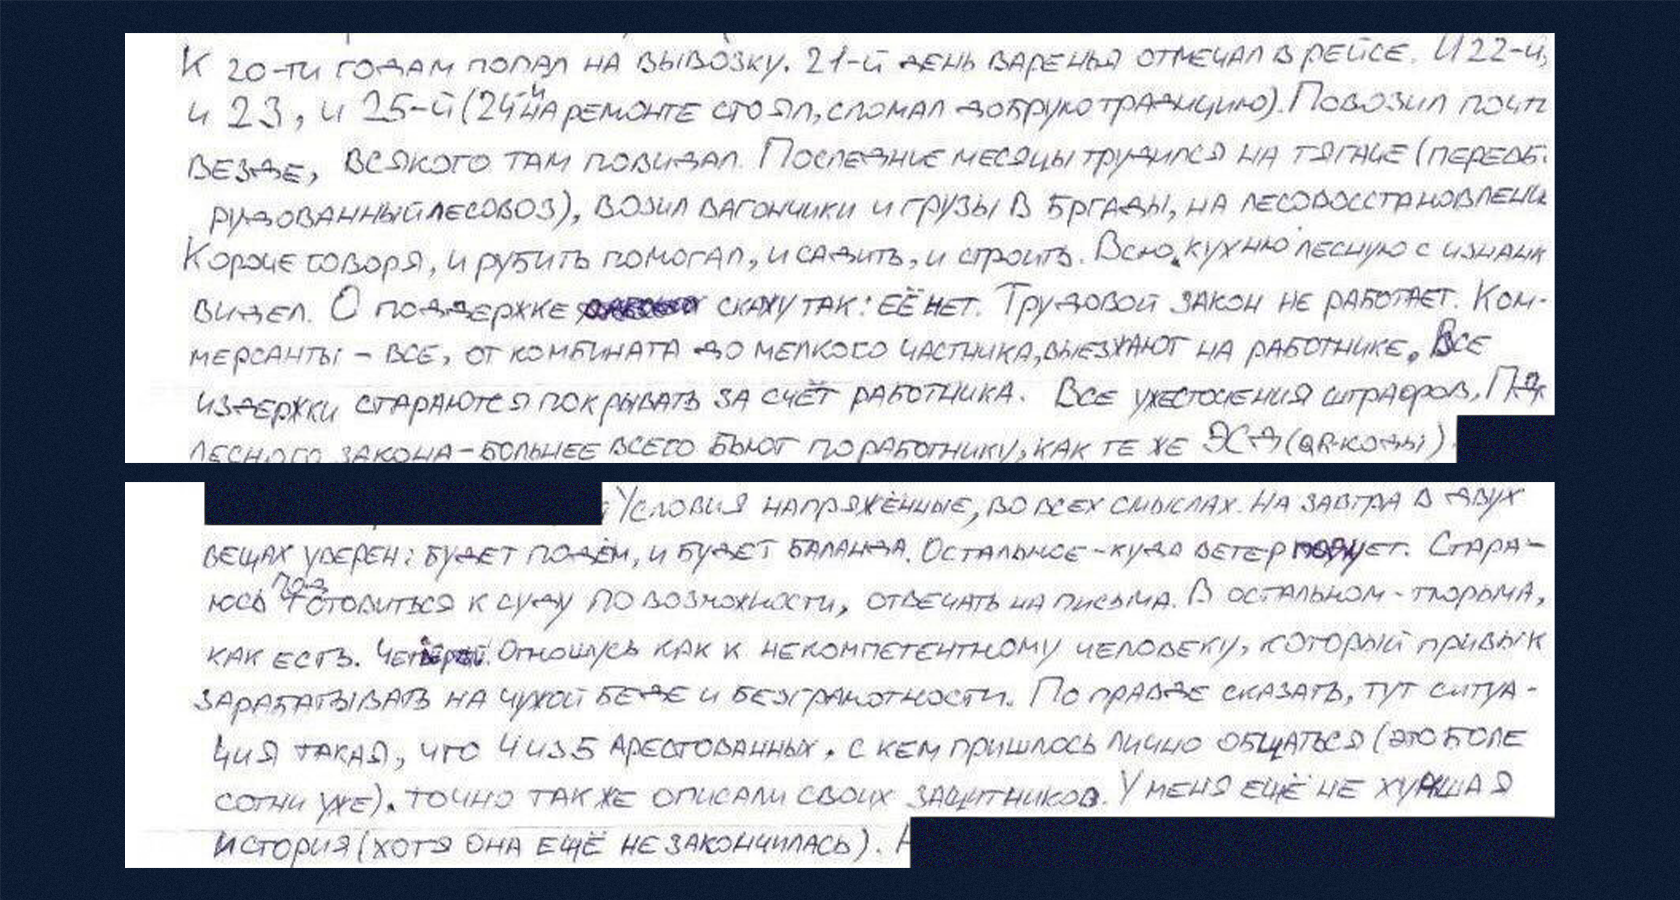 К 20-ти годам попал на вывозку. 21-й день варенья отмечал в рейсе. И 22-й,
и 23, и 25-й (24й на ремонте стоял, сломал добрую традицию). Повозил почти
везде, всякого там повидал. Последние месяцы трудился на тягаче (переоб-
рудованный лесовоз), возил вагончики и грузы в бргады, на лесовосстановлени
Короче говоря, и рубить помогал, и садить, и строить. Всю кухню лесную с изнанк
видел. О поддержке скажу так: её нет. Трудовой закон не работает. Ком-
мерсанты - все, от комбината до мелкого частника, выезжают на работнике. Все
издержки стараются покрывать за счёт работника. Все ужесточения штрафов,
лесного закона - больнее всего бьют по работнику, как те же ЭСД (QR-коды).
Условия напряжённые, во всех смыслах. На завтра в двух
вещах уверен: будет подём, и будет баланда. Остальное - куда ветер подует. Стара-
юсь подготовиться к суду по возможности, отвечать на письма. В остальном - тюрьма,
как есть. Отношусь как к некомпетентному человеку, который привык
зарабатывать на чужой беде и безграмотности. По правде сказать, тут ситуа-
ция такая, что 4 из 5 арестованных, с кем пришлось лично общаться (это боле
сотни уже), точно так же описали своих защитников. У меня ещё не худшая
история (хотя она ещё не закончилась).